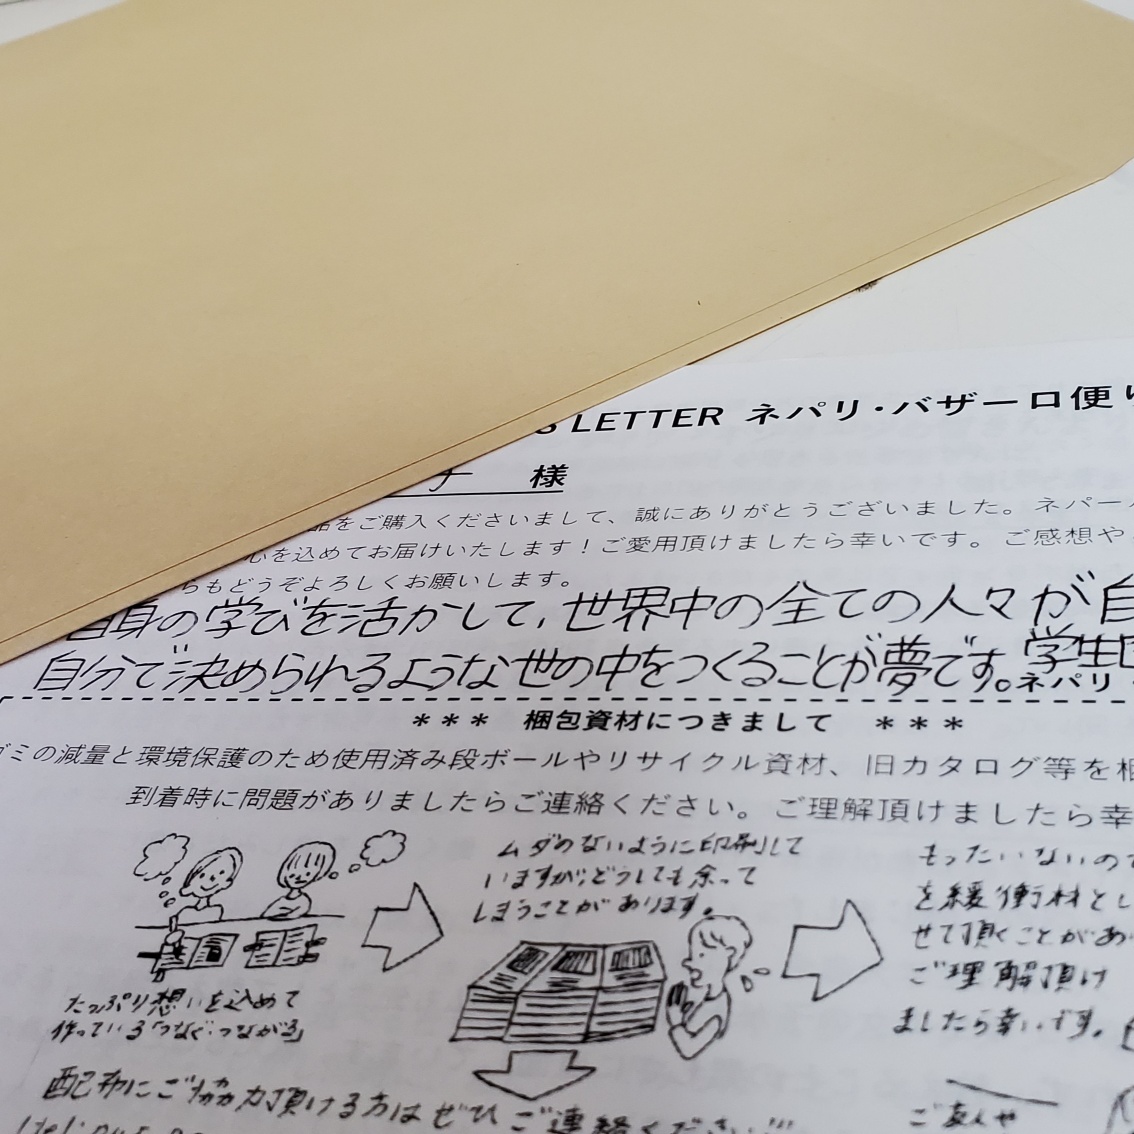 LETTER ネパリ・バザーロ便り
様
品をご購入くださいまして、誠にありがとうございました。ネパー
心を込めてお届けいたします！ご愛用頂けましたら幸いです。ご感想や
らもどうぞよろしくお願いします。
自身の学びを活かして、世界中の全ての人々が自
自分で決められるような世の中をつくることが夢です。学生
ネパリ
＊＊＊ 梱包資材につきまして ＊＊＊
ゴミの減量と環境保護のため使用済み段ボールやリサイクル資材、旧カタログ等を梱
到着時に問題がありましたらご連絡ください。ご理解頂けましたら幸
たっぷり想いを込めて
作っている「つなぐつながる」
ムダのないように印刷して
いますが、どうしても余って
しまうことがあります。
もったいないので
を緩衝材とし
せて頂くことがあ
ご理解頂け
ましたら幸いです。
配布にご協力頂ける方はぜひご連絡ください!!
ご友人や